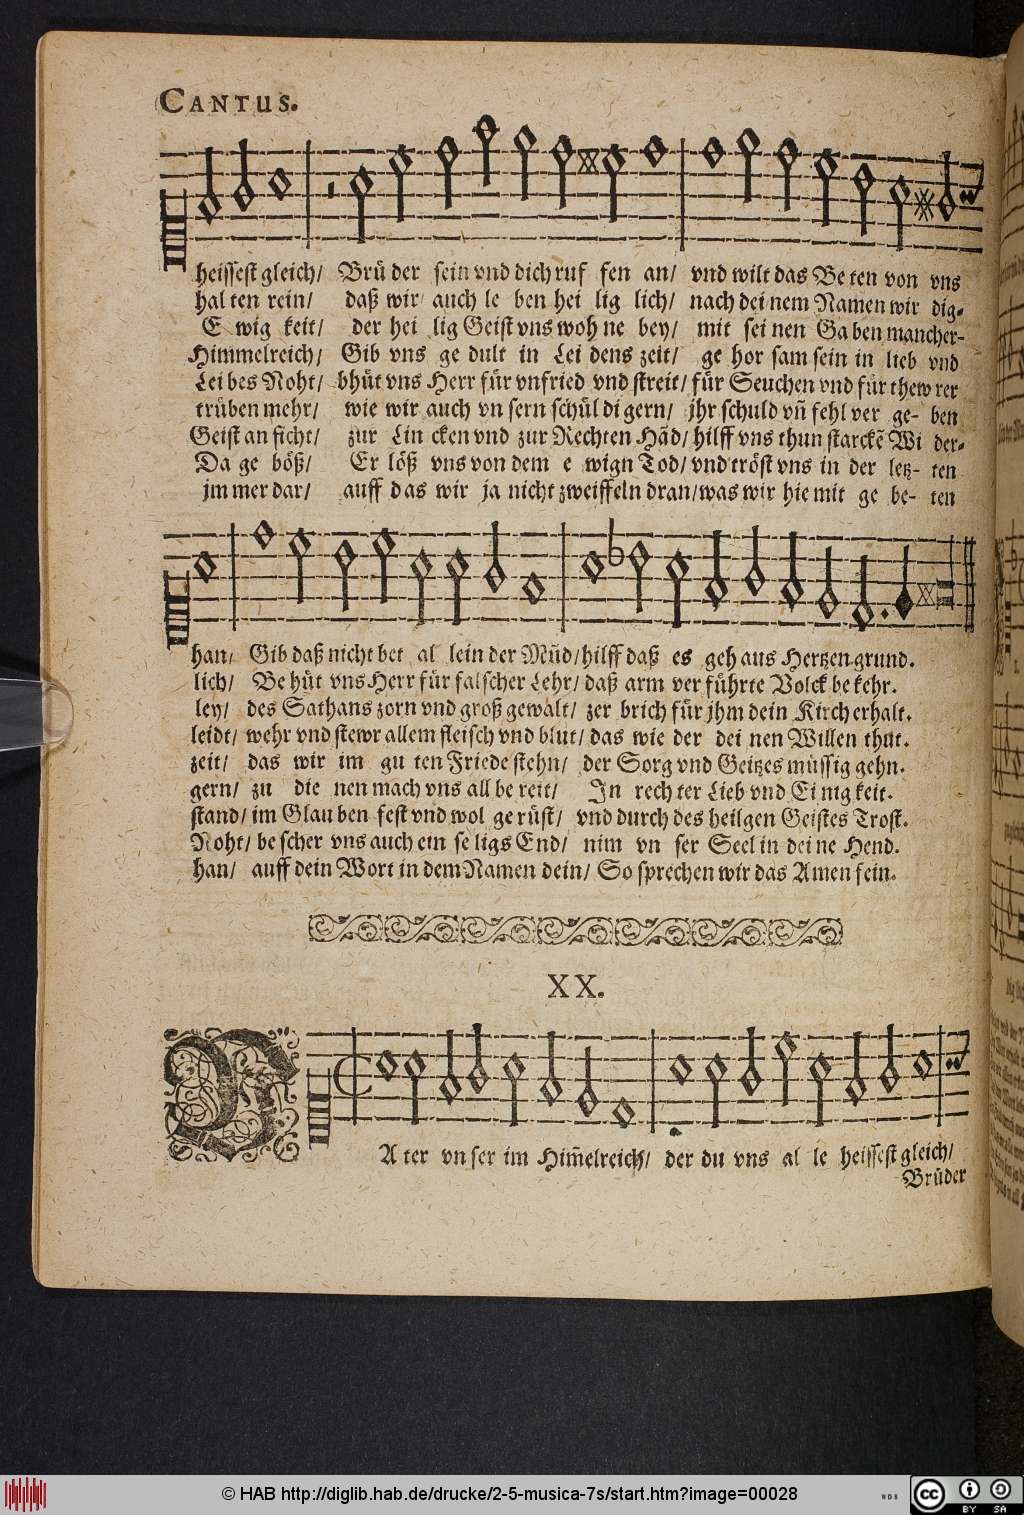 CANTUS.
heissest gleich/ Brü der sein vnd dich ruf fen an/ vnd wilt das Be ten von vns
hal ten rein/ daß wir auch le ben hei lig lich/ nach dei nem Namen wir dig-
E wig keit/ der hei lig Geist vns woh ne bey/ mit sei nen Ga ben mancher-
Himmelreich/ Gib vns ge dult in Lei dens zeit/ ge hor sam sein in lieb vnd
Lei bes Noht/ bhüt vns Herr für vnfried vnd streit/ für Seuchen vnd für thew rer
trüben mehr/ wie wir auch vn sern schül di gern/ jhr schuld vñ fehl ver ge- ben
Geist an ficht/ zur Lin cken vnd zur Rechten Hãd/ hilff vns thun starckẽ Wi der-
Da ge böß/ Er löß vns von dem e wign Tod/ vnd tröst vns in der letz- ten
jm mer dar/ auff das wir ja nicht zweiffeln dran/ was wir hie mit ge be- ten
han/ Gib daß nicht bet al lein der Mũd/ hilff daß es geh aus Hertzen grund.
lich/ Be hüt vns Herr für falscher Lehr/ daß arm ver führte Volck be kehr.
ley/ des Sathans zorn vnd groß gewalt/ zer brich für jhm dein Kirch erhalt.
leidt/ wehr vnd stewr allem fleisch vnd blut/ das wie der dei nen Willen thut.
zeit/ das wir im gu ten Friede stehn/ der Sorg vnd Geitzes müssig gehn.
gern/ zu die nen mach vns all be reit/ In rech ter Lieb vnd Ei nig keit.
stand/ im Glau ben fest vnd wol ge rüst/ vnd durch des heilgen Geistes Trost.
Noht/ be scher vns auch ein se ligs End/ nim vn ser Seel in dei ne Hend.
han/ auff dein Wort in dem Namen dein/ So sprechen wir das Amen fein.
XX.
VA ter vn ser im Him̃elreich/ der du vns al le heissest gleich/
Brüder
© HAB http://diglib.hab.de/drucke/2-5-musica-7s/start.htm?image=00028
WDB
cc BY SA